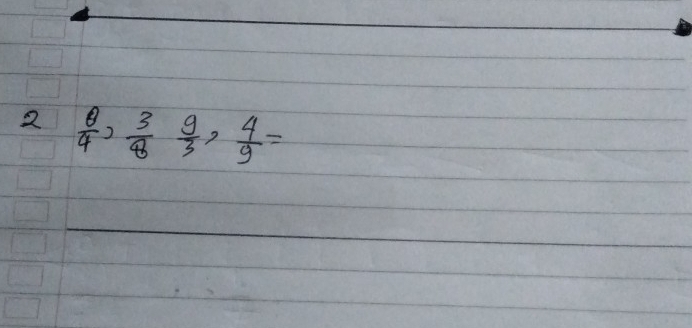 2 0/4, 3/8 9/3, 4/9 =